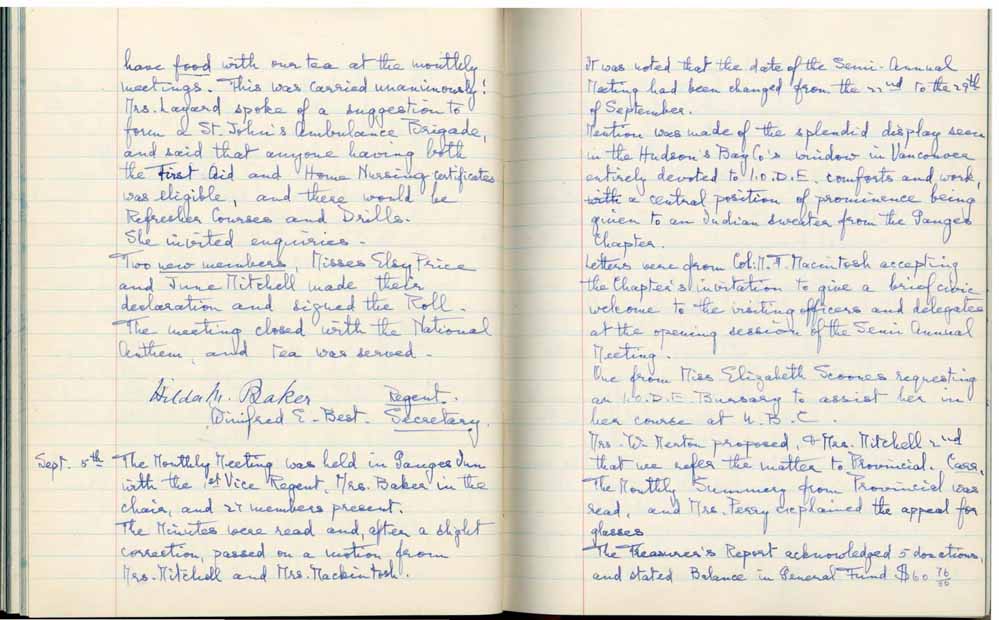 have food with our tea at the monthly
meetings. This was carried unanimously!
Mrs. Layard spoke of a suggestion to
form a St. John's Ambulance Brigade,
and said that anyone having both
the First Aid and Home Nursing certificates
was eligible, and there would be
Refresher Courses and Drills.
She invited enquiries.
Two new members, Misses Elsy Price
and June Mitchell made their
declaration and signed the Roll.
The meeting closed with the National
Anthem, and Tea was served.
Hilda M. Baker Regent.
Winifred E. Best. Secretary.
Sept. 5th The Monthly Meeting was held in Ganges Inn
with the 1st Vice Regent, Mrs. Baker in the
chair, and 27 members present.
The Minutes were read and, after a slight
correction, passed on a motion from
Mrs. Mitchell and Mrs. Mackintosh.
It was noted that the date of the Semi-Annual
Meeting had been changed from the 22nd to the 29th
of September.
Mention was made of the splendid display seen
in the Hudson's Bay Co's window in Vancouver
entirely devoted to I.O.D.E. comforts and work,
with a central position of prominence being
given to an Indian sweater from the Ganges
Chapter.
Letters were from Col. M. F. Macintosh accepting
the Chapter's invitation to give a brief civic
welcome to the visiting officers and delegates
at the opening session of the Semi Annual
Meeting.
One from Miss Elizabeth Scoones requesting
an I.O.D.E. Bursary to assist her in
her course at U.B.C.
Mrs. W. Norton proposed, & Mrs. Mitchell 2nd
that we refer the matter to Provincial. Carr.
The Monthly Summary from Provincial was
read, and Mrs. Perry explained the appeal for
glasses
The Treasurer's Report acknowledged 5 donations,
and stated Balance in General Fund $60